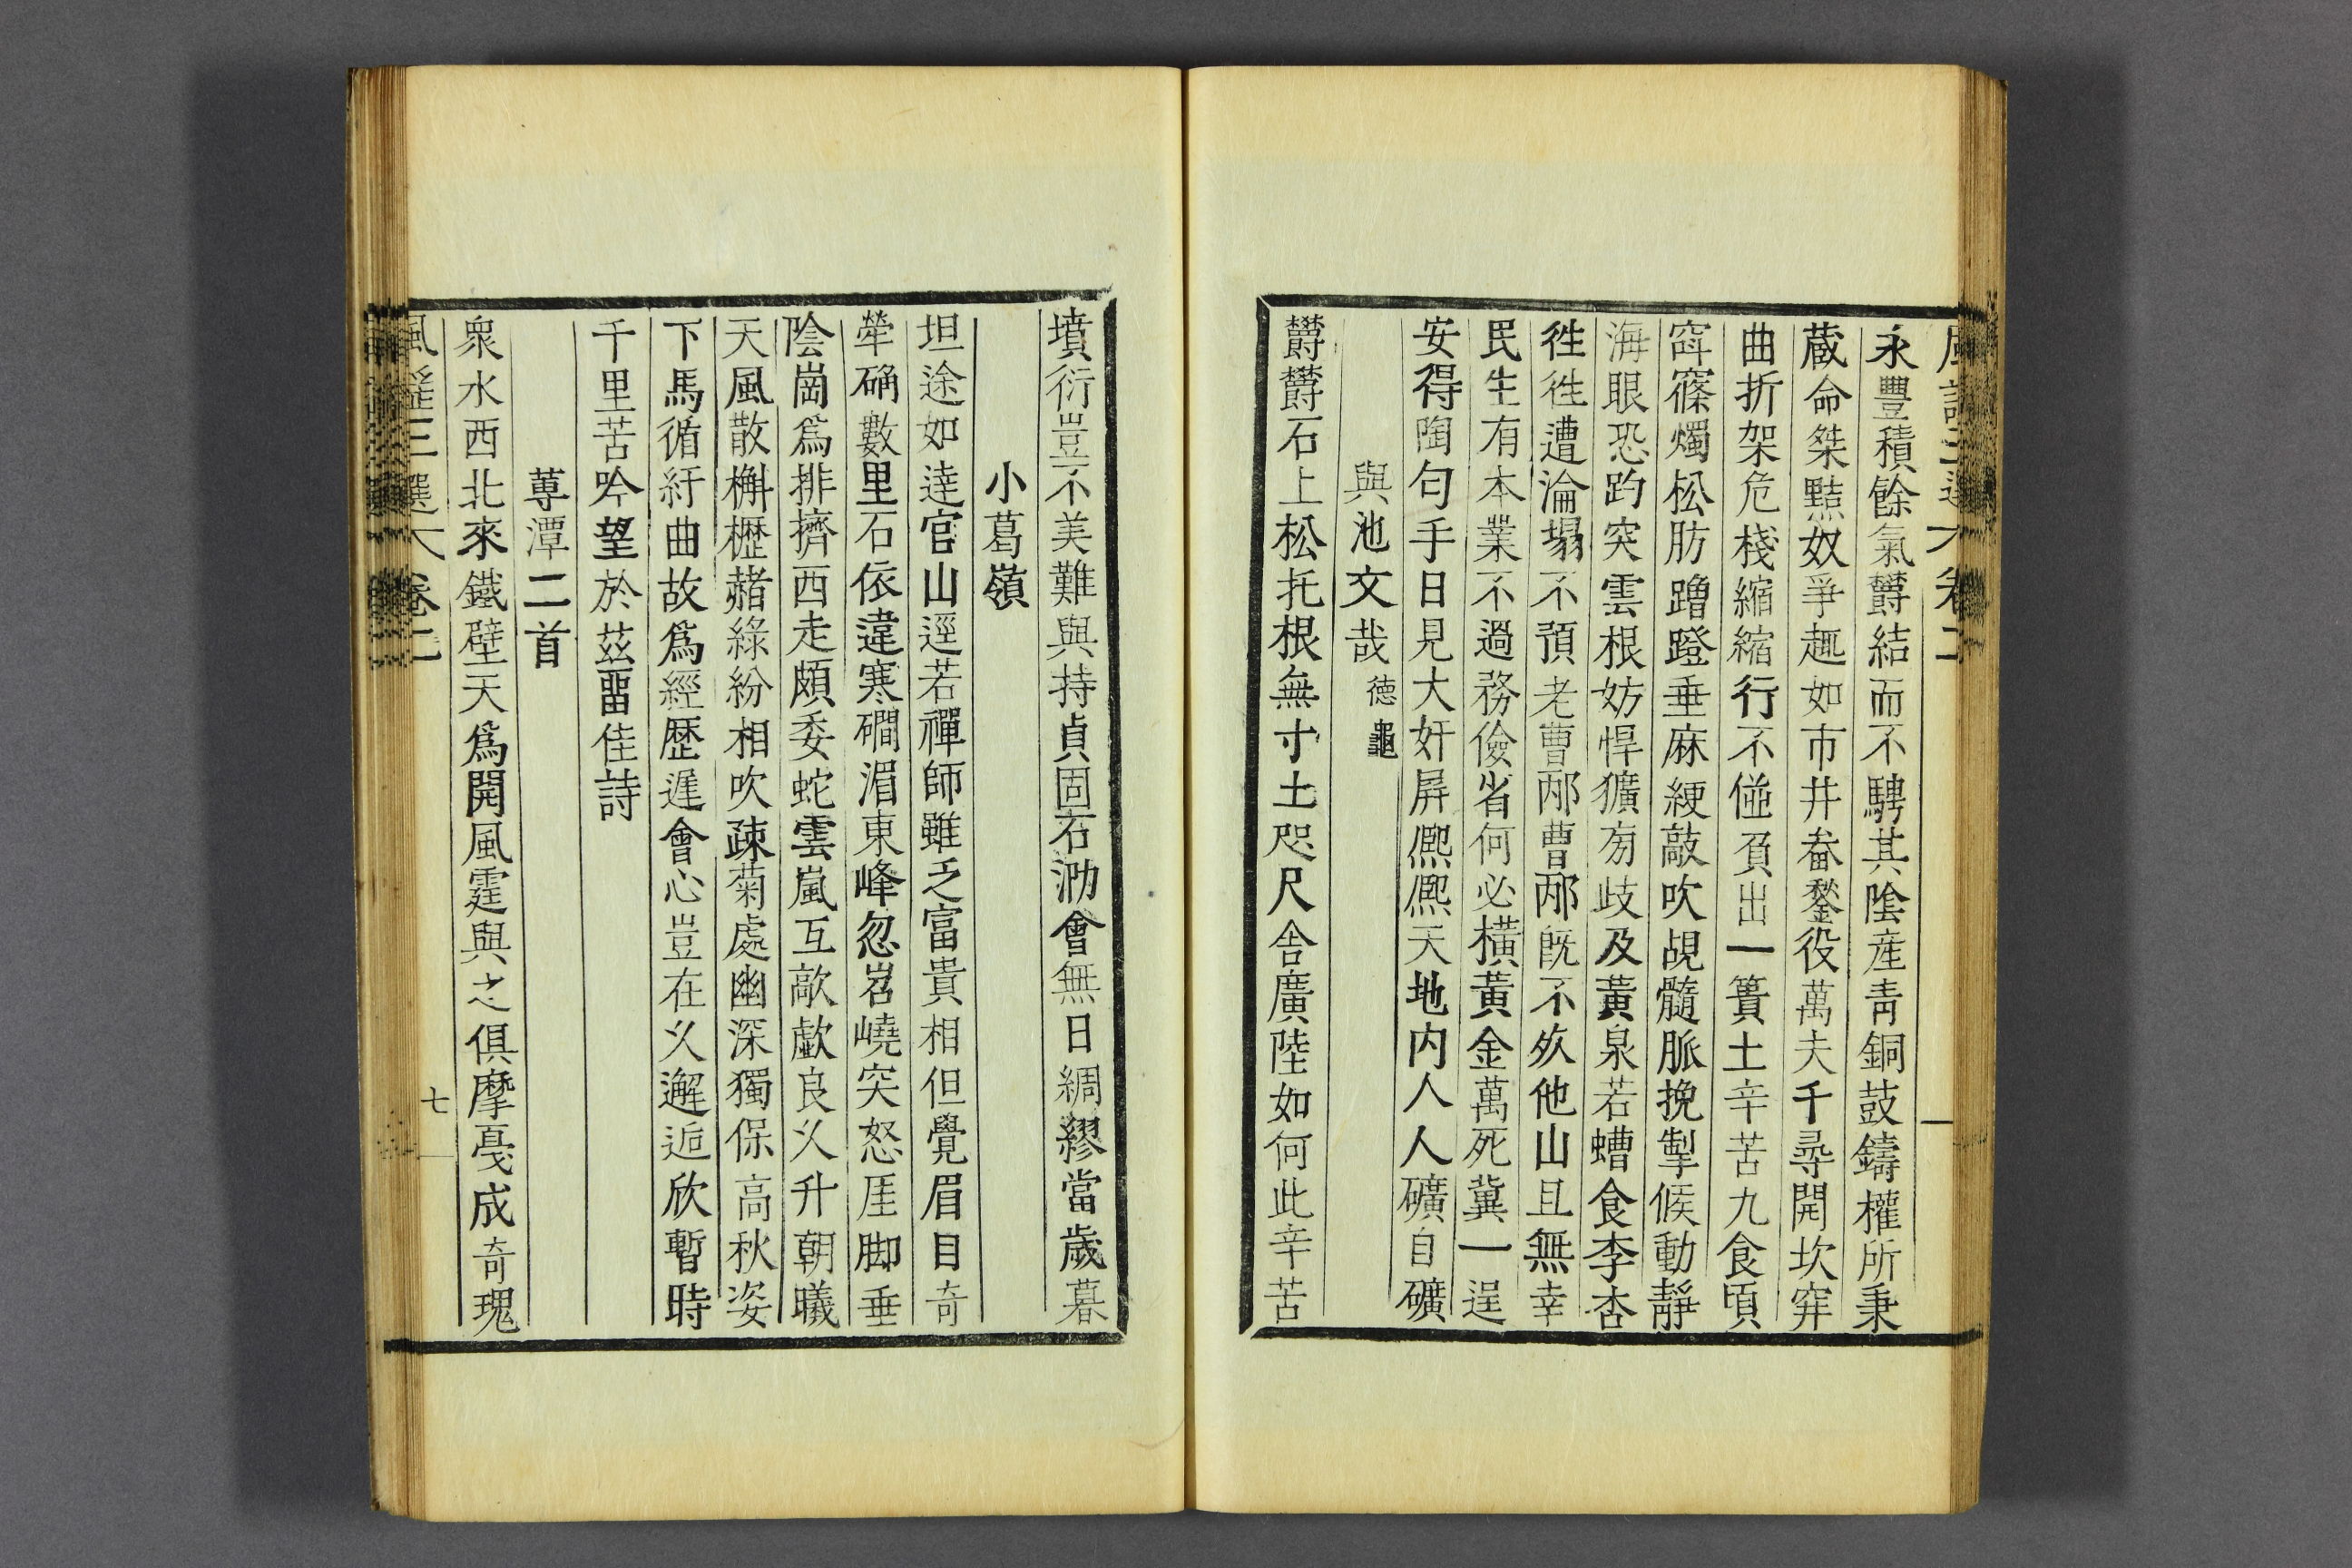 永豐積餘氣欝結而不騁其陰産青銅鼓鑄權所秉
蔵命桀黠奴爭趣如市井畚鍫役萬夫千尋開坎穽
曲折架危棧縮縮行不僅負出一簣土辛苦九食頃
窂窱燭松肪蹭蹬垂麻綆敲吹覘髓脈挽掣候動靜
海眼恐趵突雲根妨悍獷旁歧及黃泉若螬食李杏
徃徃遭淪塌不預老曹邴曹邴旣不夊他山且無幸
民生有本業不過務儉省何必橫黃金萬死冀一逞
安得陶句手日見大奸屏熈熈天地内人人礦自礦
與池文哉德龜
欝欝石上松托根無寸土咫尺舍廣陸如何此辛苦
墳衍豈不美難與持貞固石泐會無日綢繆當歲暮
小葛嶺
坦途如達官山逕若禪師雖乏富貴相但覺眉目奇
犖确數里石依違寒磵湄東峰忽岧嶢突怒厓脚垂
陰崗爲排擠西走頗委蛇雲嵐互歊歔良乆升朝曦
天風散槲櫪赭綠紛相吹疎菊處幽深獨保高秋姿
下馬循紆曲故爲經歴遲會心豈在乆邂逅欣暫時
千里苦吟望於茲畱佳詩
蓴潭二首
衆水西北來鐵壁天爲開風霆與之俱摩戞成奇瑰
風謠三選 卷二
七